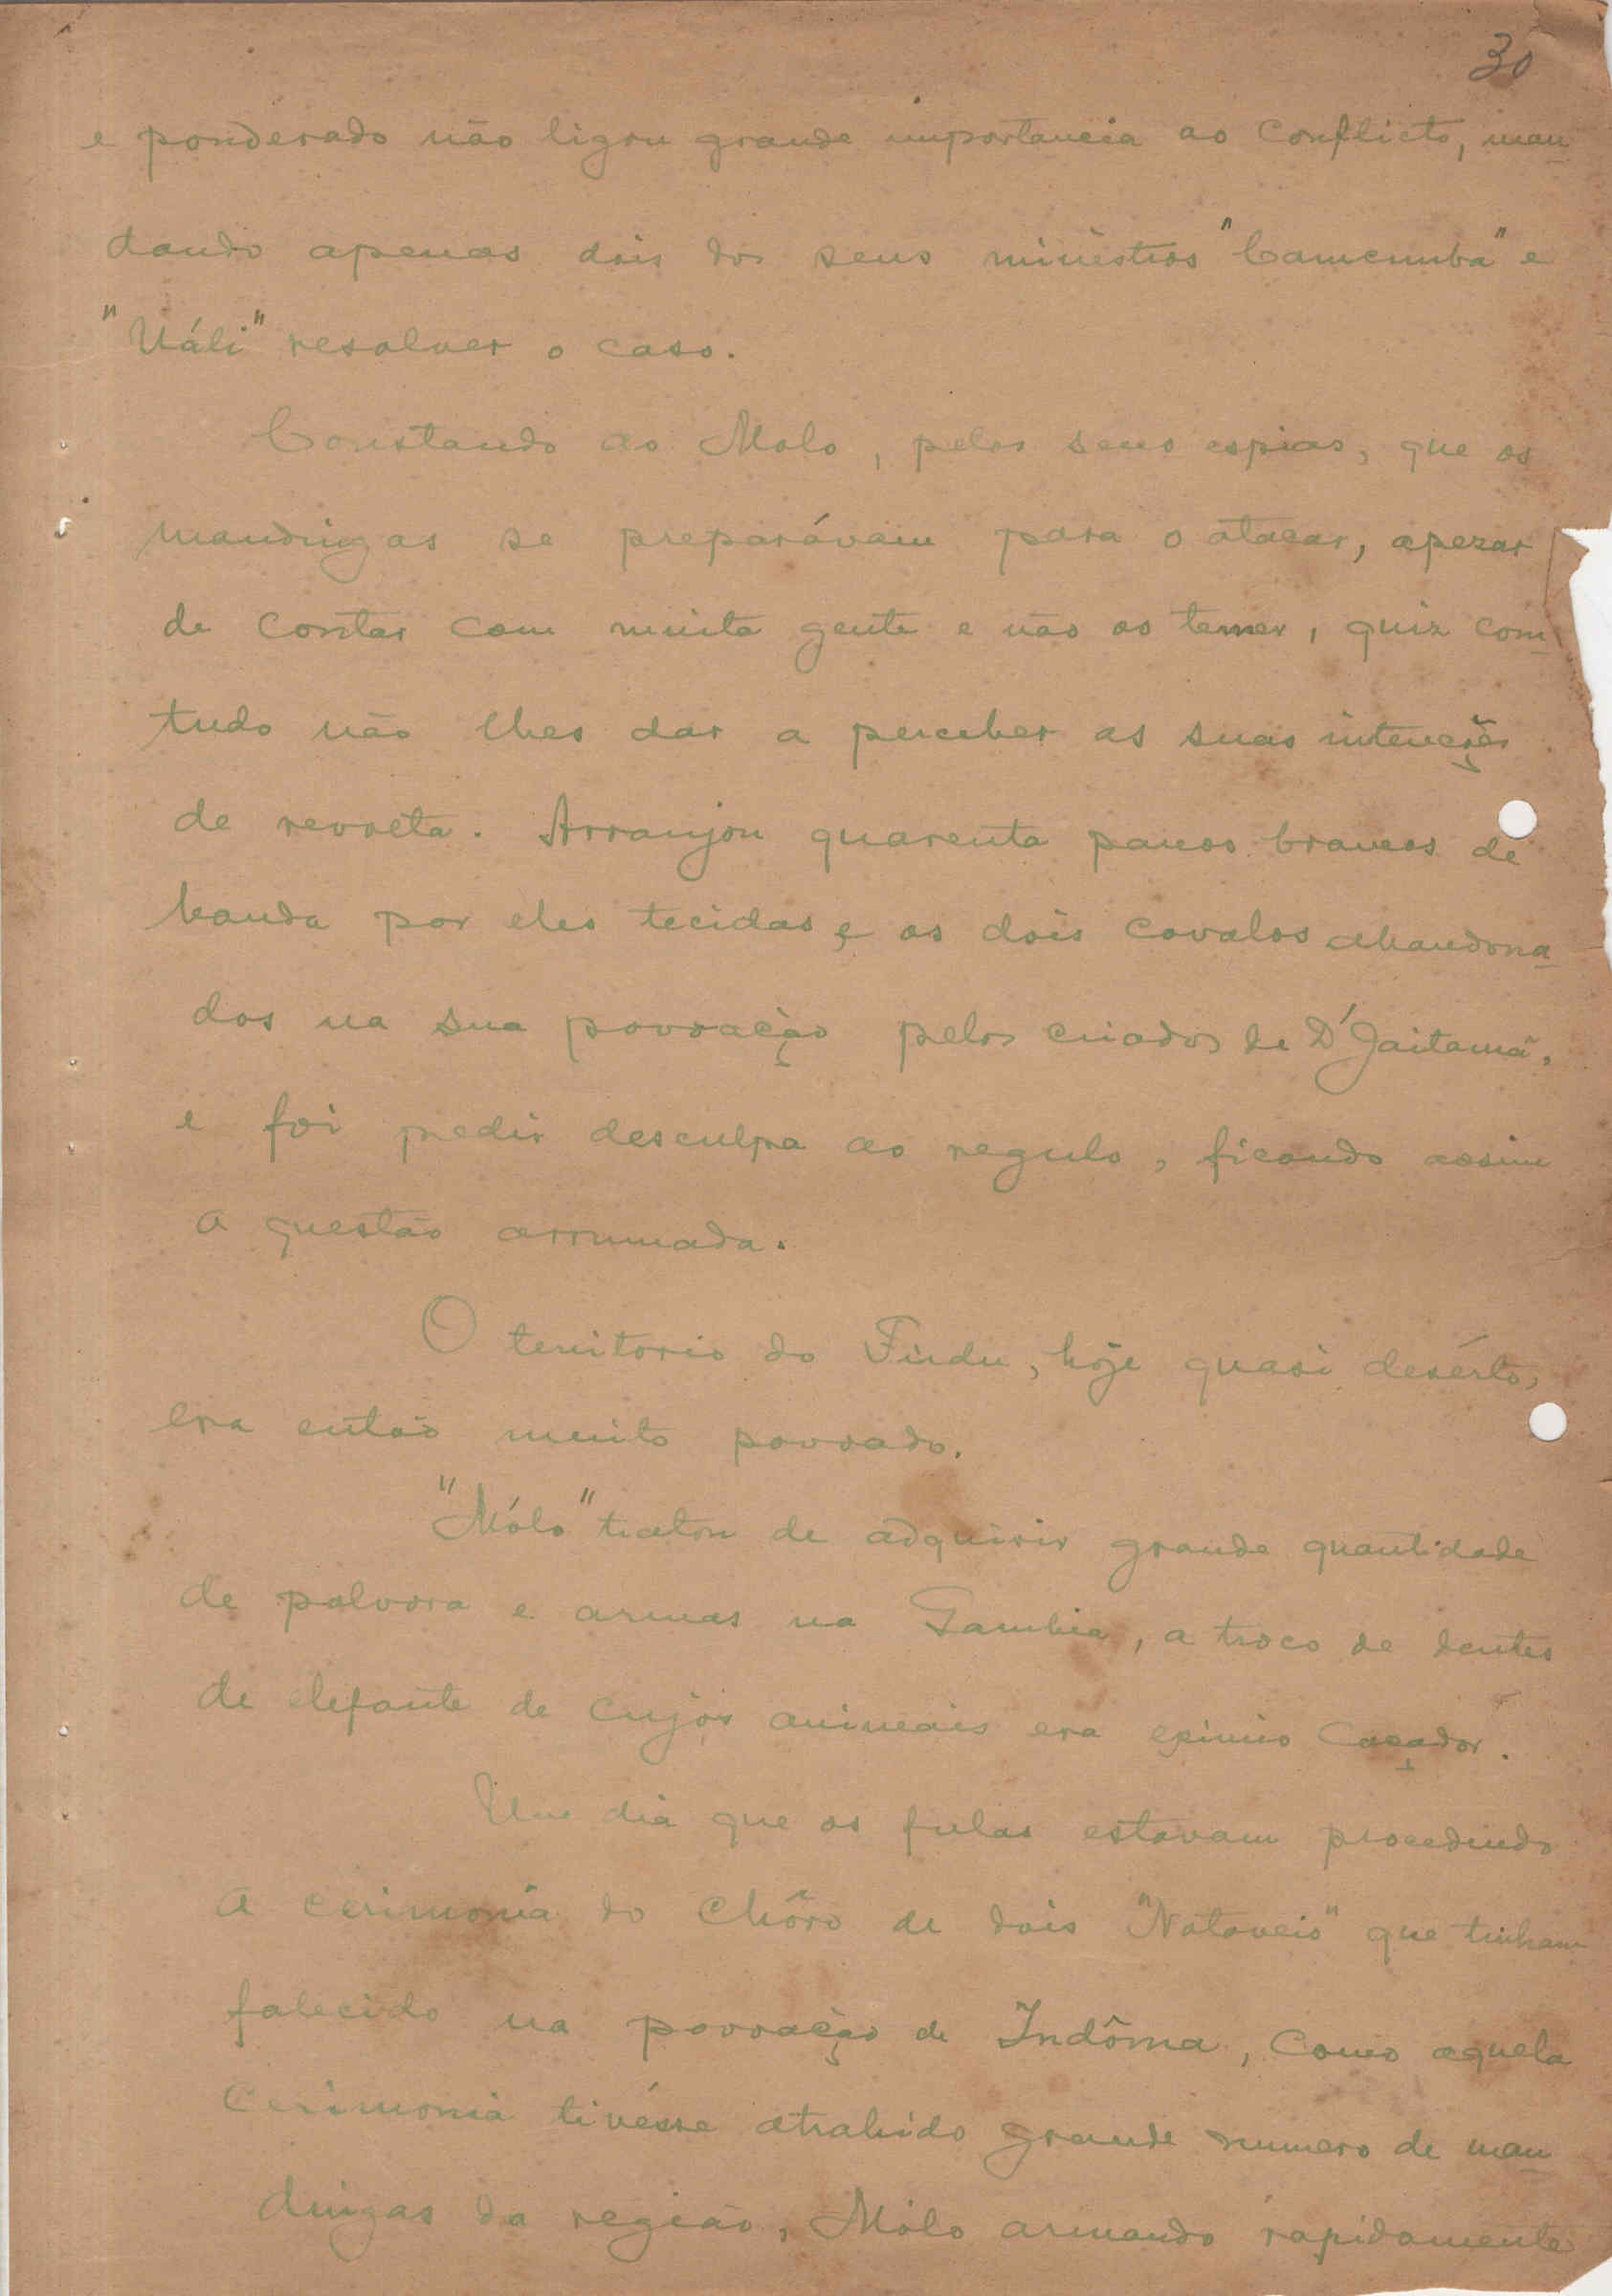 30
e ponderado não ligou grande importancia ao conflicto, man
dando apenas dois dos seus ministros "Camcumba" e
"Uáli" resolver o caso.
Constando ao Molo, pelos seus espias, que os
mandingas se preparávam para o atacar, apezar
de contar com muita gente e não os temer, quiz com
tudo não lhes dar a perceber as suas intenções
de revolta. Arranjou quarenta panos brancos de
banda por eles tecidas e os dois cavalos abandona
dos na sua povoação pelos criados de D'Jaitamã,
e foi pedir desculpa ao regulo, ficando assim
a questão arrumada.
O territorio do Firdu, hoje quasi desérto,
era então muito povoado.
"Mólo" tratou de adquirir grande quantidade
de polvora e armas na Gambia, a troco de dentes
de elefante de cujos animais era eximio caçador.
Um dia que os fulas estavam procedendo
a cerimonia do chôro de dois "Notaveis" que tinham
falecido na povoação de Indôma, como aquela
cerimonia tivésse atrahido grande numero de man
dingas da região, Mólo armando rapidamente